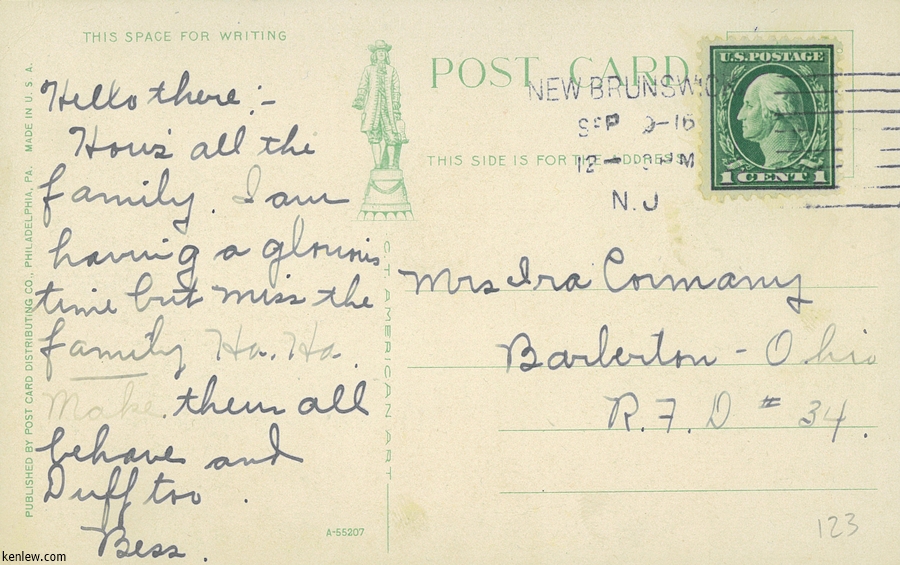 THIS SPACE FOR WRITING
Hello there:-
Hows all the
family. I am
having a glorious
time but miss the
family Ha. Ha.
Make them all
behave and
Duff too.
Bess.
PUBLISHED BY POST CARD DISTRIBUTING CO., PHILADELPHIA, PA. MADE IN U. S. A.
A-55207
C. T. AMERICAN ART
POST CARD
THIS SIDE IS FOR THE ADDRESS
NEW BRUNSWIC
SEP 9-16
12- PM
N.J
U.S. POSTAGE
1 CENT 1
Mrs Ira Cormany
Barberton - Ohio
R.F.D # 34.
123
kenlew.com